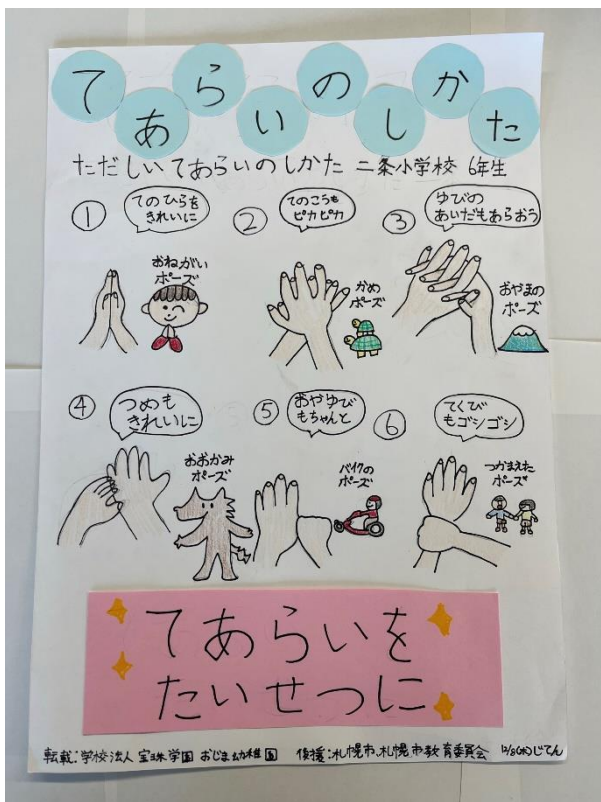 てあらいのしかた
ただしいてあらいのしかた 二条小学校 6年生
①
てのひらを
きれいに
おねがい
ポーズ
②
てのこうも
ピカピカ
かめ
ポーズ
③
ゆびの
あいだもあらおう
おやまの
ポーズ
④
つめも
きれいに
おおかみ
ポーズ
⑤
おやゆび
もちゃんと
バイクの
ポーズ
⑥
てくび
もゴシゴシ
つかまえた
ポーズ
てあらいを
たいせつに
転載:学校法人 宝珠学園 おじま幼稚園 後援:札幌市、札幌市教育委員会 12/8(木)じてん